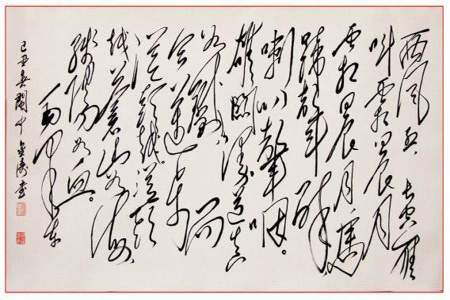 西风烈 长空雁
叫霜晨月
霜晨月 马
蹄声碎
喇叭声咽
雄关漫道真
如铁 而
今迈步
从头越 从头
越 苍山如海
残阳如血。
毛泽东
己丑春阆中